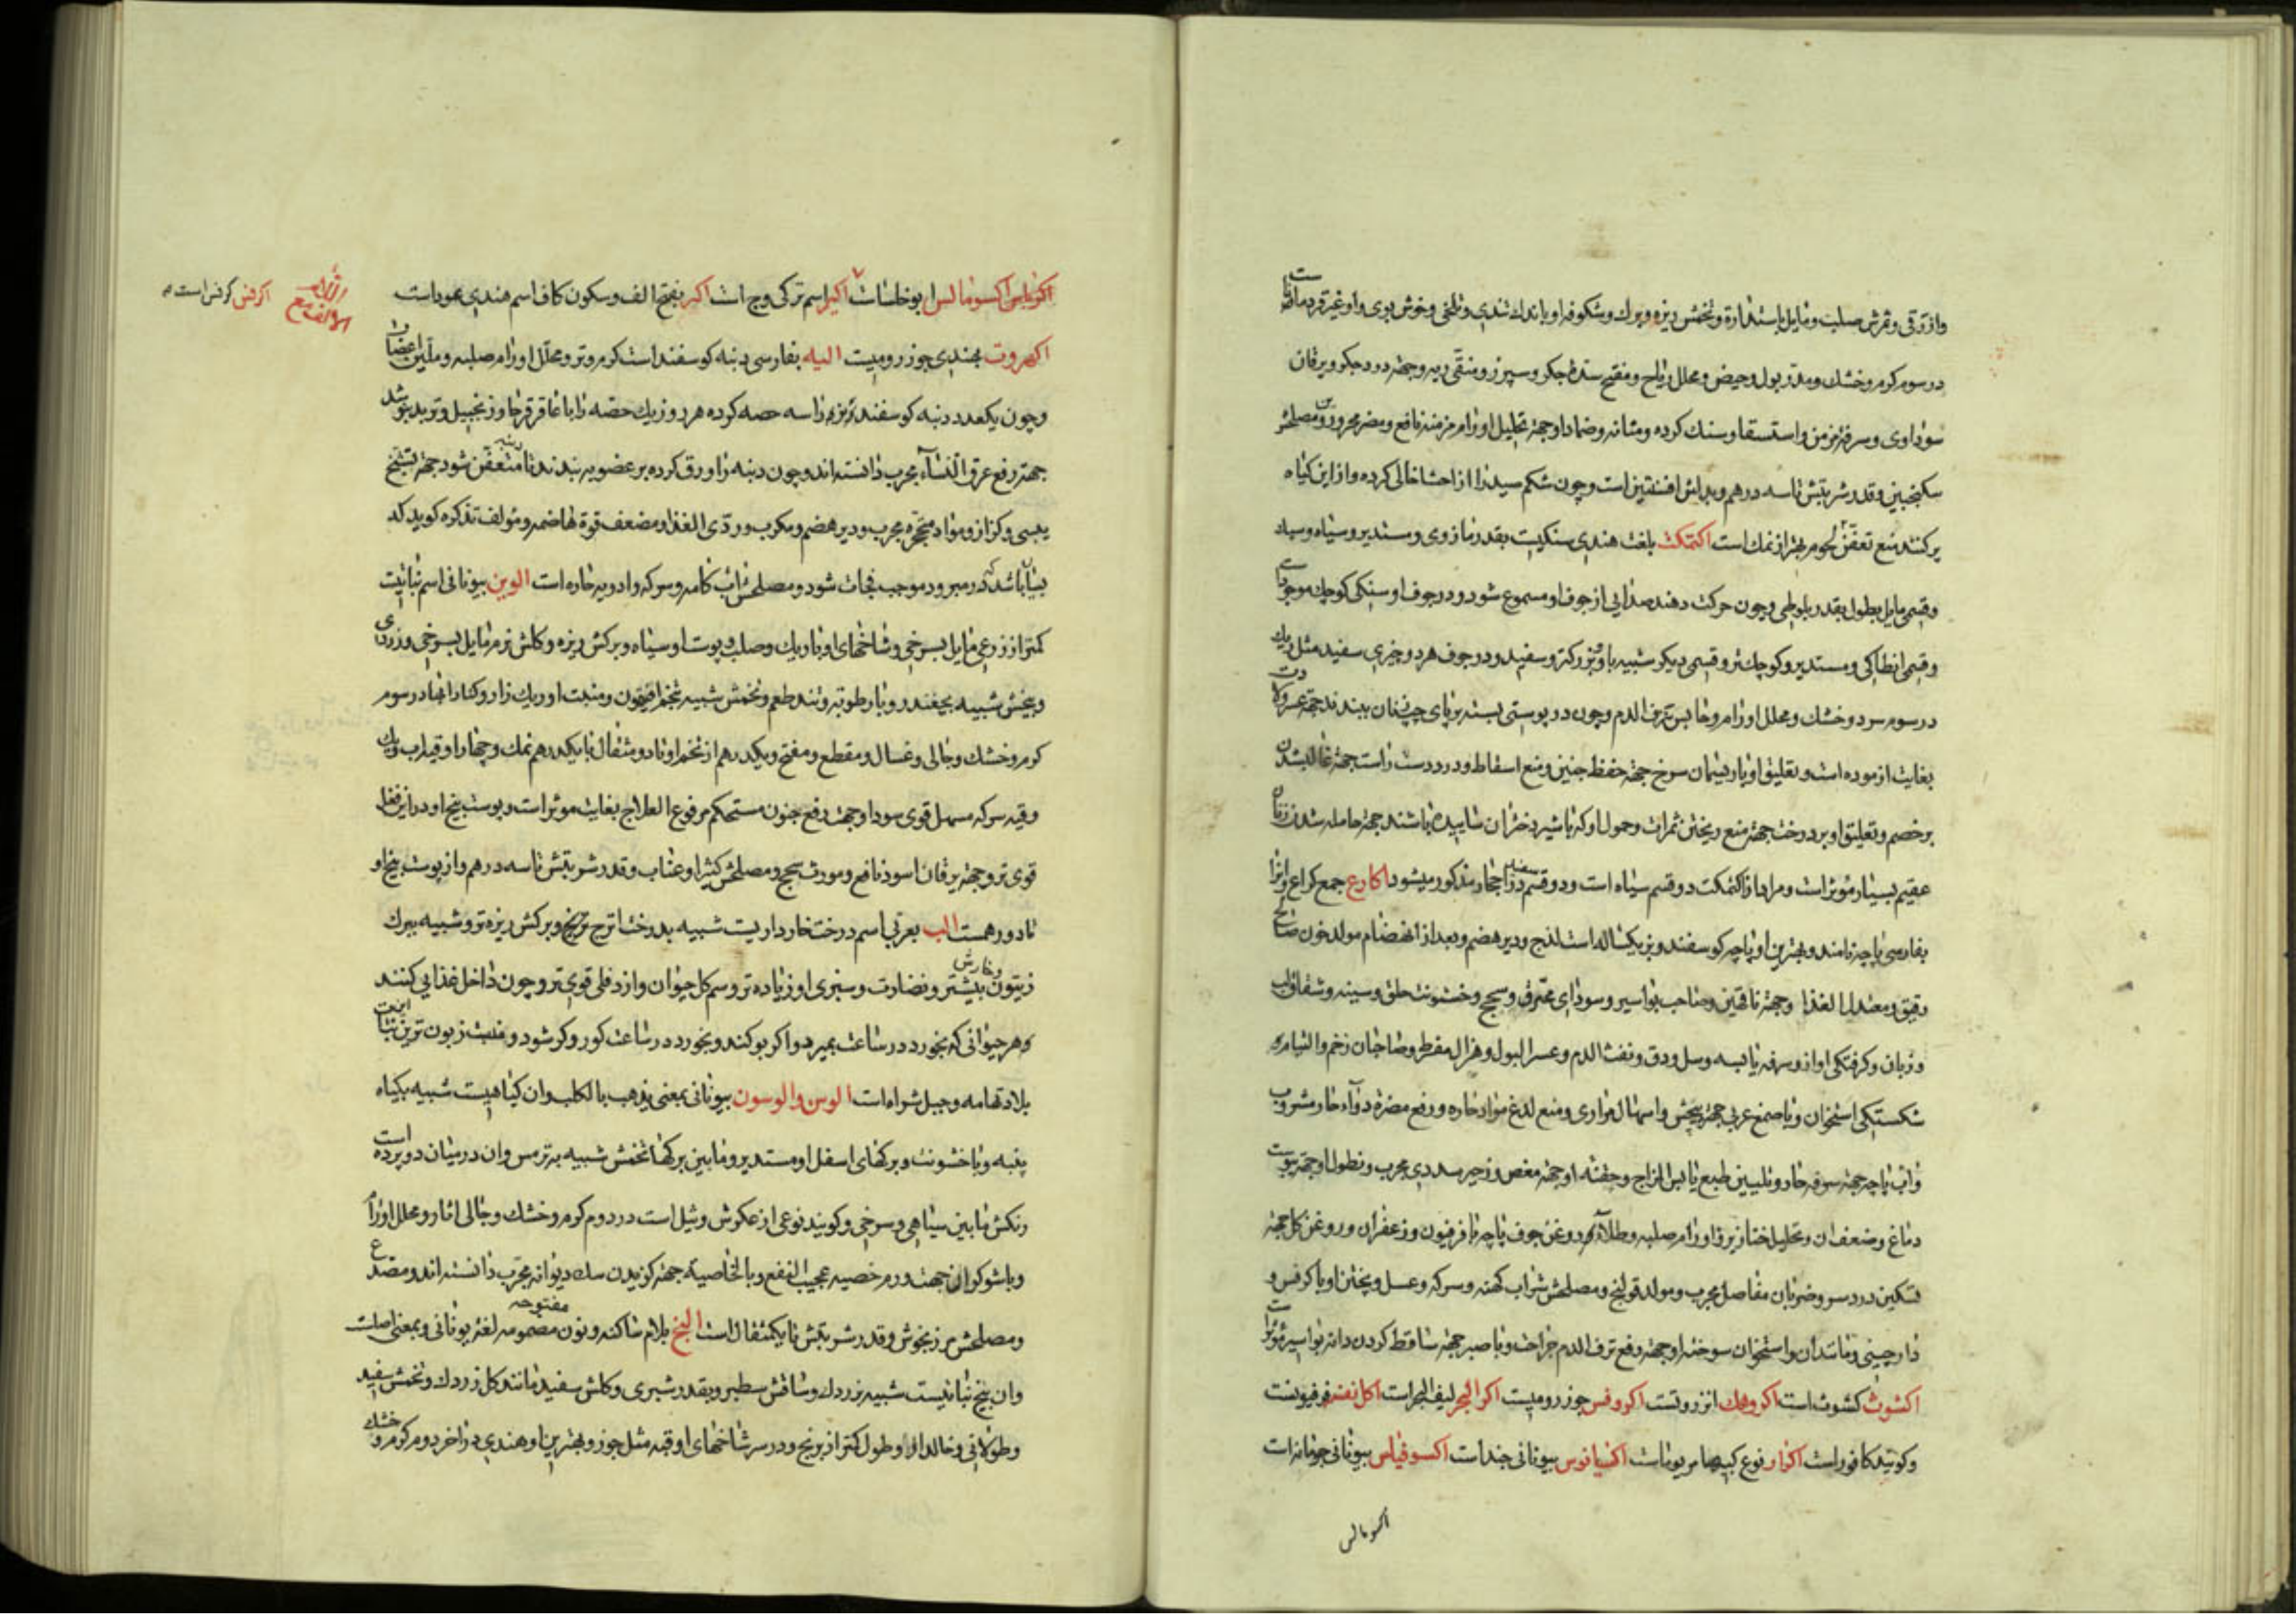 وازرقی و ثمرش صلب و مایل باستداره و تخمش ریزه و برك و شکوفه او باندك تندی و تلخی و خوش بوی و او غیر قردمانا است
در سوم کرم و خشك و مدر بول و حیض و محلل ریاح و مفتح سدۀ جکر و سپرز و منقی ریه و جهة درد جکر و یرقان
سوداوی و سرفۀ مزمن و استسقا و سنك کرده و مثانه و ضمادا و جهة تحلیل اورام مزمنه نافع و مضر محرورین و مصلحش
سکنجبین و قدر شربتش تا سه درهم و بدلش افسنتین است و چون شکم صید را از احشا خالی کرده و از این کیاه
پر کنند منع تعفن لحوم بهتر از نمك است اکتمکت بلغت هندی سنکیست بقدر مازوی و مستدیر و سیاه و سپید
و قسمی مایل بطول بقدر بلوطی و چون حرکت دهند صدایی از جوف او مسموع شود و در جوف او سنکی کوچك موجود است
و قسم انطاکی و مستدیر و کوچك تر و قسمی دیکر شبیه باو و بزرکتر و سفید و در جوف هر دو چیزی سفید مثل ریك
در سوم سرد و خشك و محلل اورام و حابس نزف الدم و چون در پوستی بسته بر پای چپ زنان ببندند جهة عسر ولادت
بغایت ازموده است و تعلیق او با ریسمان سرخ جهة حفظ جنین و منع اسقاط و در دست راست جهة غالب شدن
بر خصم و تعلیق او بر درخت جهة منع ریختن ثمرات و حمول او که با شیر دختران ساییده باشند جهة حامله شدن زنان
عقیم بسیار مؤثر است و مراد از اکتمکت دو قسم سیاه است و دو قسم سفید در احجار مذکور میشود اکارع جمع کراع و انرا
بفارسی پاچه نامند و بهترین او پاچه کوسفند و بز یکساله است لذج و دیر هضم و بعد از انهضام مولد خون صالح
رقیق و معتدل الغذا و جهة ناقهین و صاحب بواسیر و سودای محترق و سحج و خشونت حلق و سینه و شقاق لب
و زبان و کرفتکی اواز و سرفه یابسه و سل و دق و نفث الدم و عسر البول و هزال مفرط و صاحبان زخم و التیام
شکستکی استخوان و با صمغ عربی جهة پیچش و اسهال مراری و منع لدغ مواد حاره و رفع مضرة دواء حار مشروب
و اب پاچه جهة سرفه حار و تلیین طبع یابس المزاج و حقنه او جهة مغص و زحیر سددی مجرب و نطول او جهة یبوست
دماغ و ضعف ان و تحلیل خنازیر و اورام صلبه و طلاء روغن جوف پاچه با فرفیون و زعفران و روغن کل جهة
تسکین درد سر و ضربان مفاصل مجرب و مولد قولنج و مصلحش شراب کهنه و سرکه و عسل و پختن او با کرفس و
دارچینی و مانند ان و استخوان سوخته او جهة رفع نزف الدم جراحت و با صبر جهة ساقط کردن دانه بواسیر مؤثر است
اکشوث کشوث است اکروهك انزروتست اکروفس جوز رومیست اکر البحر لیف البحر است اکل نفسه فرفیونست
و کویند کافور است اکرار نوع کبیر صامریوما است اکسیانوس بیونانی جند است اکسوفیلس بیونانی است
اکسومالس
اکرباس اکسومالس ابوخلسا است اکیر اسم ترکی وج است اکر بفتح الف و سکون کاف اسم هندی عود است
اکهروت بهندی جوز رومیست الیه بفارسی دنبه کوسفند است کرم و تر و محلل اورام صلبه و ملین اعضا و
و چون یکعدد دنبه کوسفند نر بزه را سه حصه کرده هر روز یك حصه را با عاقرقرحا و زنجبیل و تربد بنوشد
جهة رفع عرق النساء مجرب دانسته اند و چون دنبه را ورق کرده بر عضوی ببندند تا متعفن شود جهة تشنج
یبسی و کزاز و مواد متحجره مجرب و دیر هضم و مکرب و ردی الغذا و مضعف قوة هاضمه و مؤلف تذکره کوید که
بسا باشد که در مبرود موجب فجأت شود و مصلحش اب کامه و سرکه و ادویه حاره است الوین بیونانی اسم نباتیست
کمتر از زرعی مایل بسرخی و شاخهای او باریك و صلب و پوست او سیاه و برکش ریزه و کلش نرم مایل بسرخی و زردی
و بیخش شبیه بچغندر و با رطوبه و تند طعم و تخمش شبیه بتخم افتیمون و منبت او ریك زار و کنار دریا در سوم
کرم و خشك و جالی و غسال و مقطع و مفتح و یکدرهم از تخم او تا دو مثقال با یکدرهم نمك و چهار اوقیه اب و یك
وقیه سرکه مسهل قوی سودا و جهة رفع جنون مستحکم مرفوع العلاج بغایت موثر است و پوست بیخ او در این افعال
قوی تر و جهة یرقان اسود نافع و مورث سحج و مصلحش کثیرا و عناب و قدر شربتش تا سه درهم و از پوست بیخ او
تا دو درهمست الب بعربی اسم درخت خارداریست شبیه بدرخت اترج و برکش ریزه تر و شبیه ببرك
زیتون و خارش بیشتر و نضارت و سبزی او زیاده تر و سم کل حیوان و از دفلی قوی تر و چون داخل غذایی کنند
هر حیوانی که بخورد در ساعت بمیرد و اکر بو کند و نخورد در ساعت کور و کر شود و منبت زبون ترین نباتات
بلاد تهامه و جبل شراه است الوسن و الوسون بیونانی بمعنی یذهب بالکلب و ان کیاهیست شبیه بکیاه
پنبه و با خشونت و برکهای اسفل او مستدیر و مابین برکها تخمش شبیه بترمس و ان در میان دو پرده است
رنکش مابین سیاهی و سرخی و کویند نوعی از عکرش و ثیل است در دوم کرم و خشك و جالی اثار و محلل اورام
و با شوکران جهة ورم خصیه عجیب النفع و بالخاصیة جهة کزیدن سك دیوانه مجرب دانسته اند و مصدع
و مصلحش مرزنجوش و قدر شربتش تا یکمثقال است النج بلام ساکنه و نون مضمومه مفتوحه لغة یونانی و بمعنی
وان بیخ نباتیست شبیه بزردك و ساقش سطبر و بقدر شبری و کلش سفید مانند کل زردك و تخمش سفید
و طولانی و خالدار و طول کمتر از برنج و در سر شاخهای او قبه مثل جوز و بهترین او هندی در اخر دوم کرم و خشك
الالف مع اللام
اکرفس کرفس است